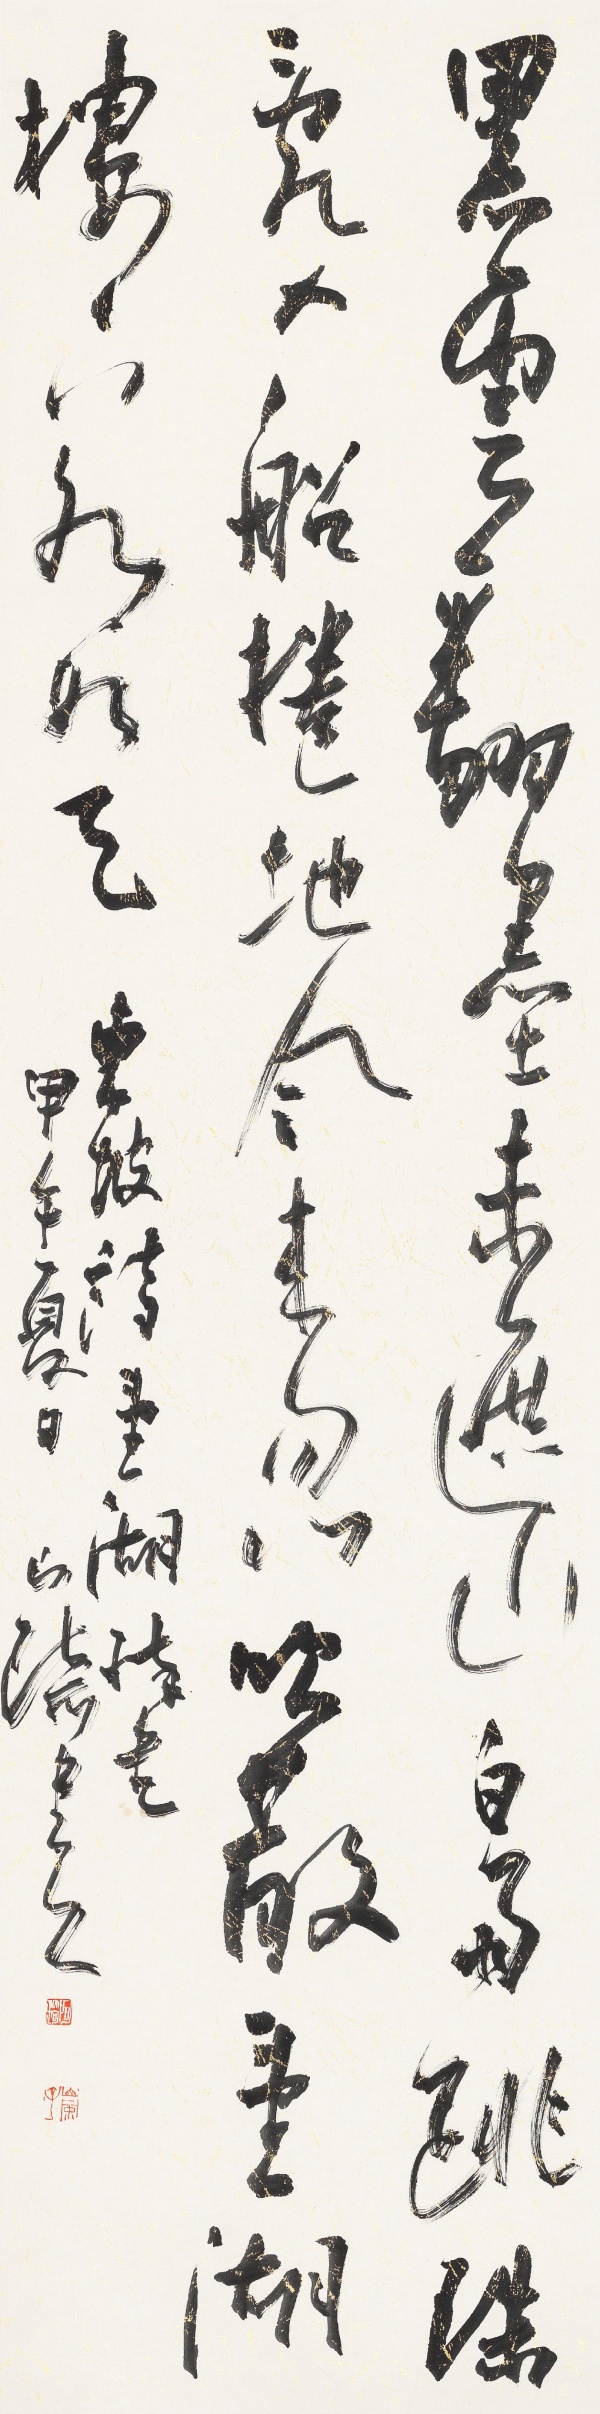 黑雲翻墨未遮山白雨跳珠
亂入船捲地風來忽吹散望湖
樓下水如天
東坡詩望湖醉書
甲午夏日